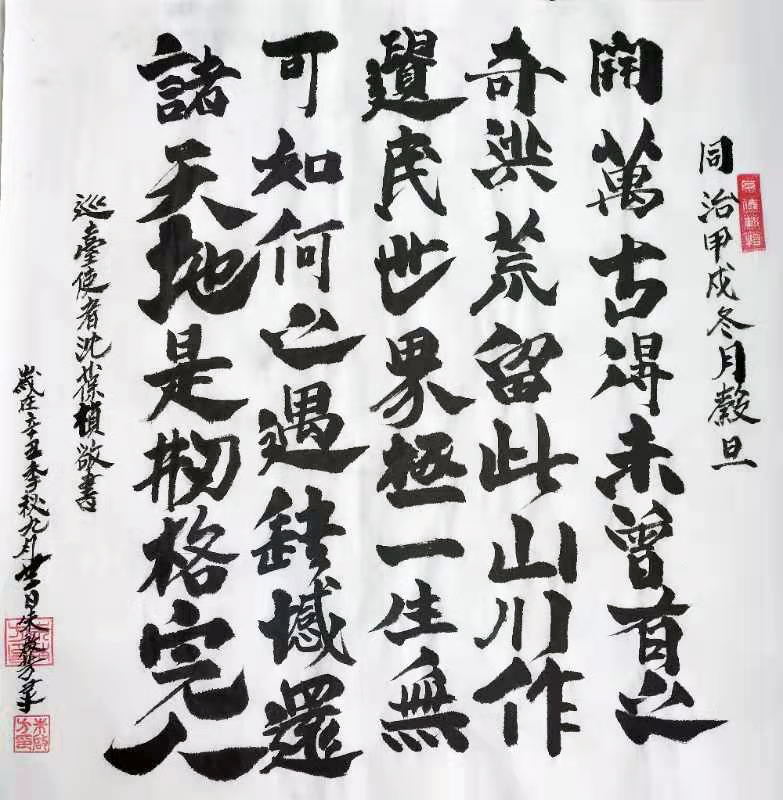 同治甲戌冬月穀旦
開萬古得未曾有之
奇洪荒留此山川作
遺民世界極一生無
可如何之遇缺憾還
諸天地是刱格完人
巡臺使者沈葆楨敬書
歲在辛丑季秋九月日朱